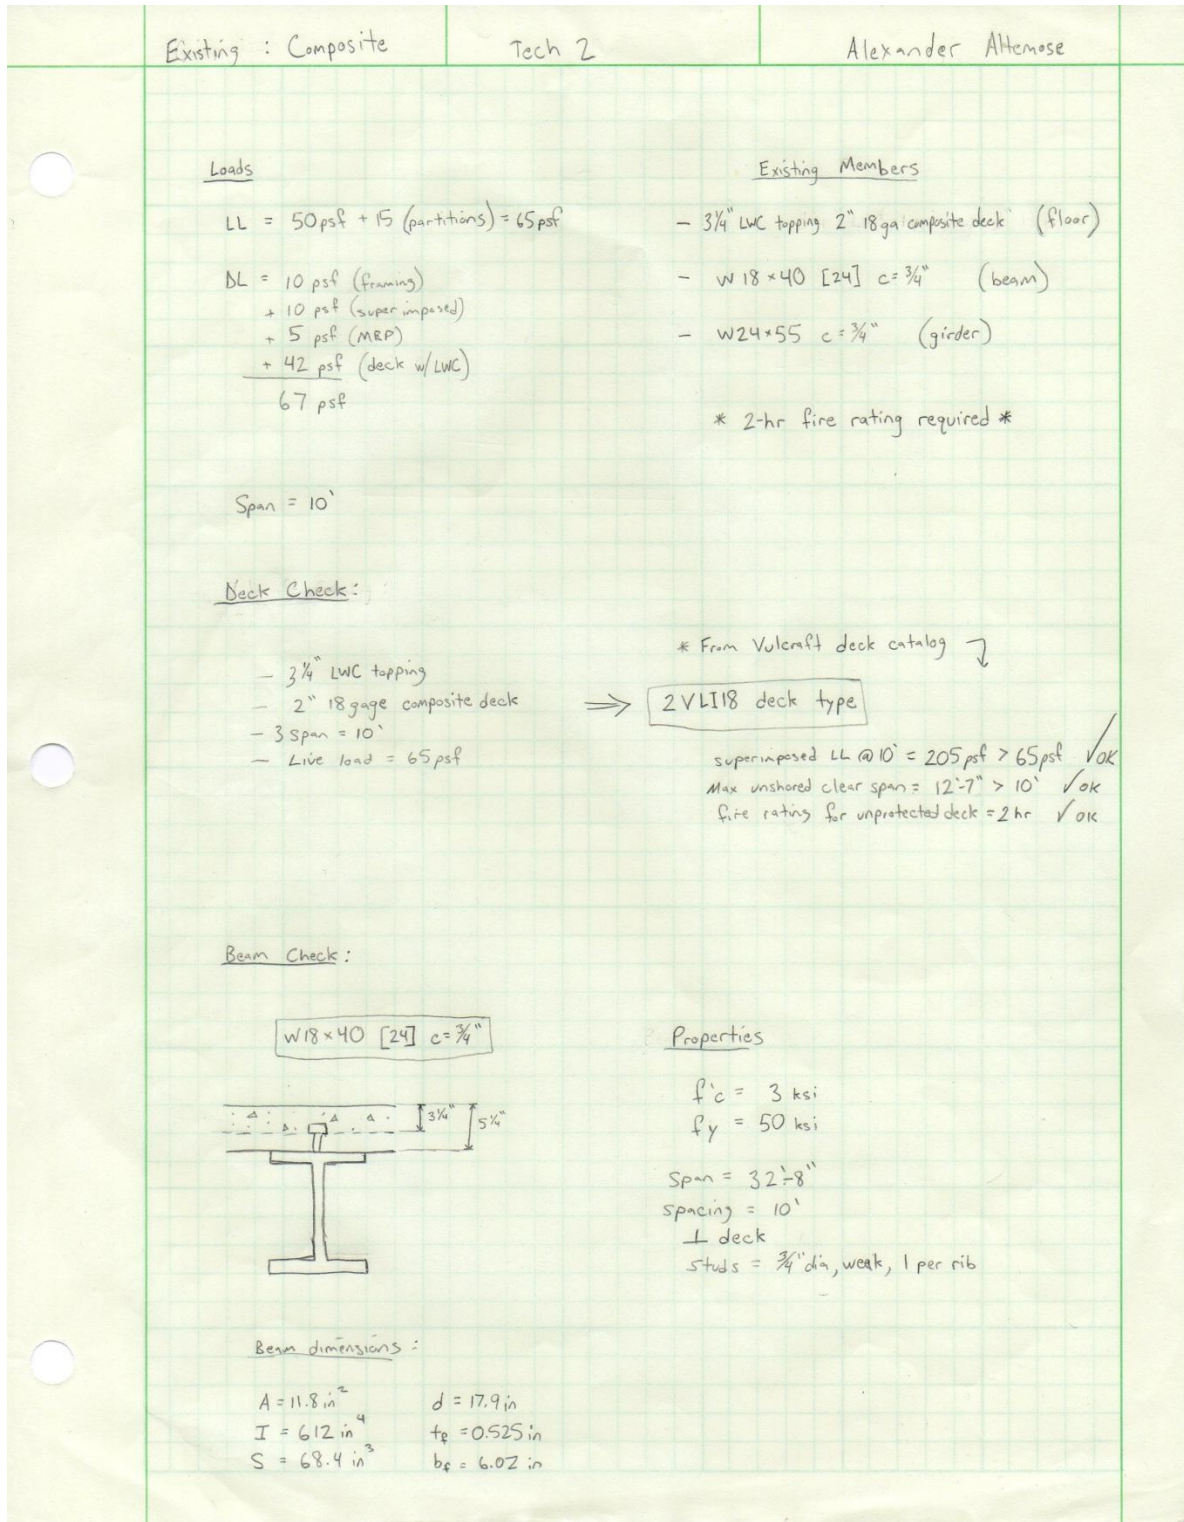 Existing : Composite
Tech 2
Alexander Altemose
Loads
LL = 50 psf + 15 (partitions) = 65 psf
DL = 10 psf (framing)
+ 10 psf (super imposed)
+ 5 psf (MEP)
+ 42 psf (deck w/ LWC)
67 psf
Existing Members
- 3¼" LWC topping 2" 18 ga composite deck (floor)
- W 18 × 40 [24] c = ¾" (beam)
- W24×55 c = ¾" (girder)
* 2-hr fire rating required *
Span = 10'
Deck Check:
- 3¼" LWC topping
- 2" 18 gage composite deck
- 3 span = 10'
- Live load = 65 psf
⇒
* From Vulcraft deck catalog
2VLI18 deck type
superimposed LL @ 10' = 205 psf > 65 psf ✓ OK
Max unshored clear span = 12'-7" > 10' ✓ OK
fire rating for unprotected deck = 2 hr ✓ OK
Beam Check:
W18×40 [24] c=¾"
3¼"
5¼"
Properties
f'c = 3 ksi
fy = 50 ksi
Span = 32'-8"
spacing = 10'
⊥ deck
studs = ¾" dia, weak, 1 per rib
Beam dimensions :
A = 11.8 in²
I = 612 in⁴
S = 68.4 in³
d = 17.9 in
tf = 0.525 in
bf = 6.02 in